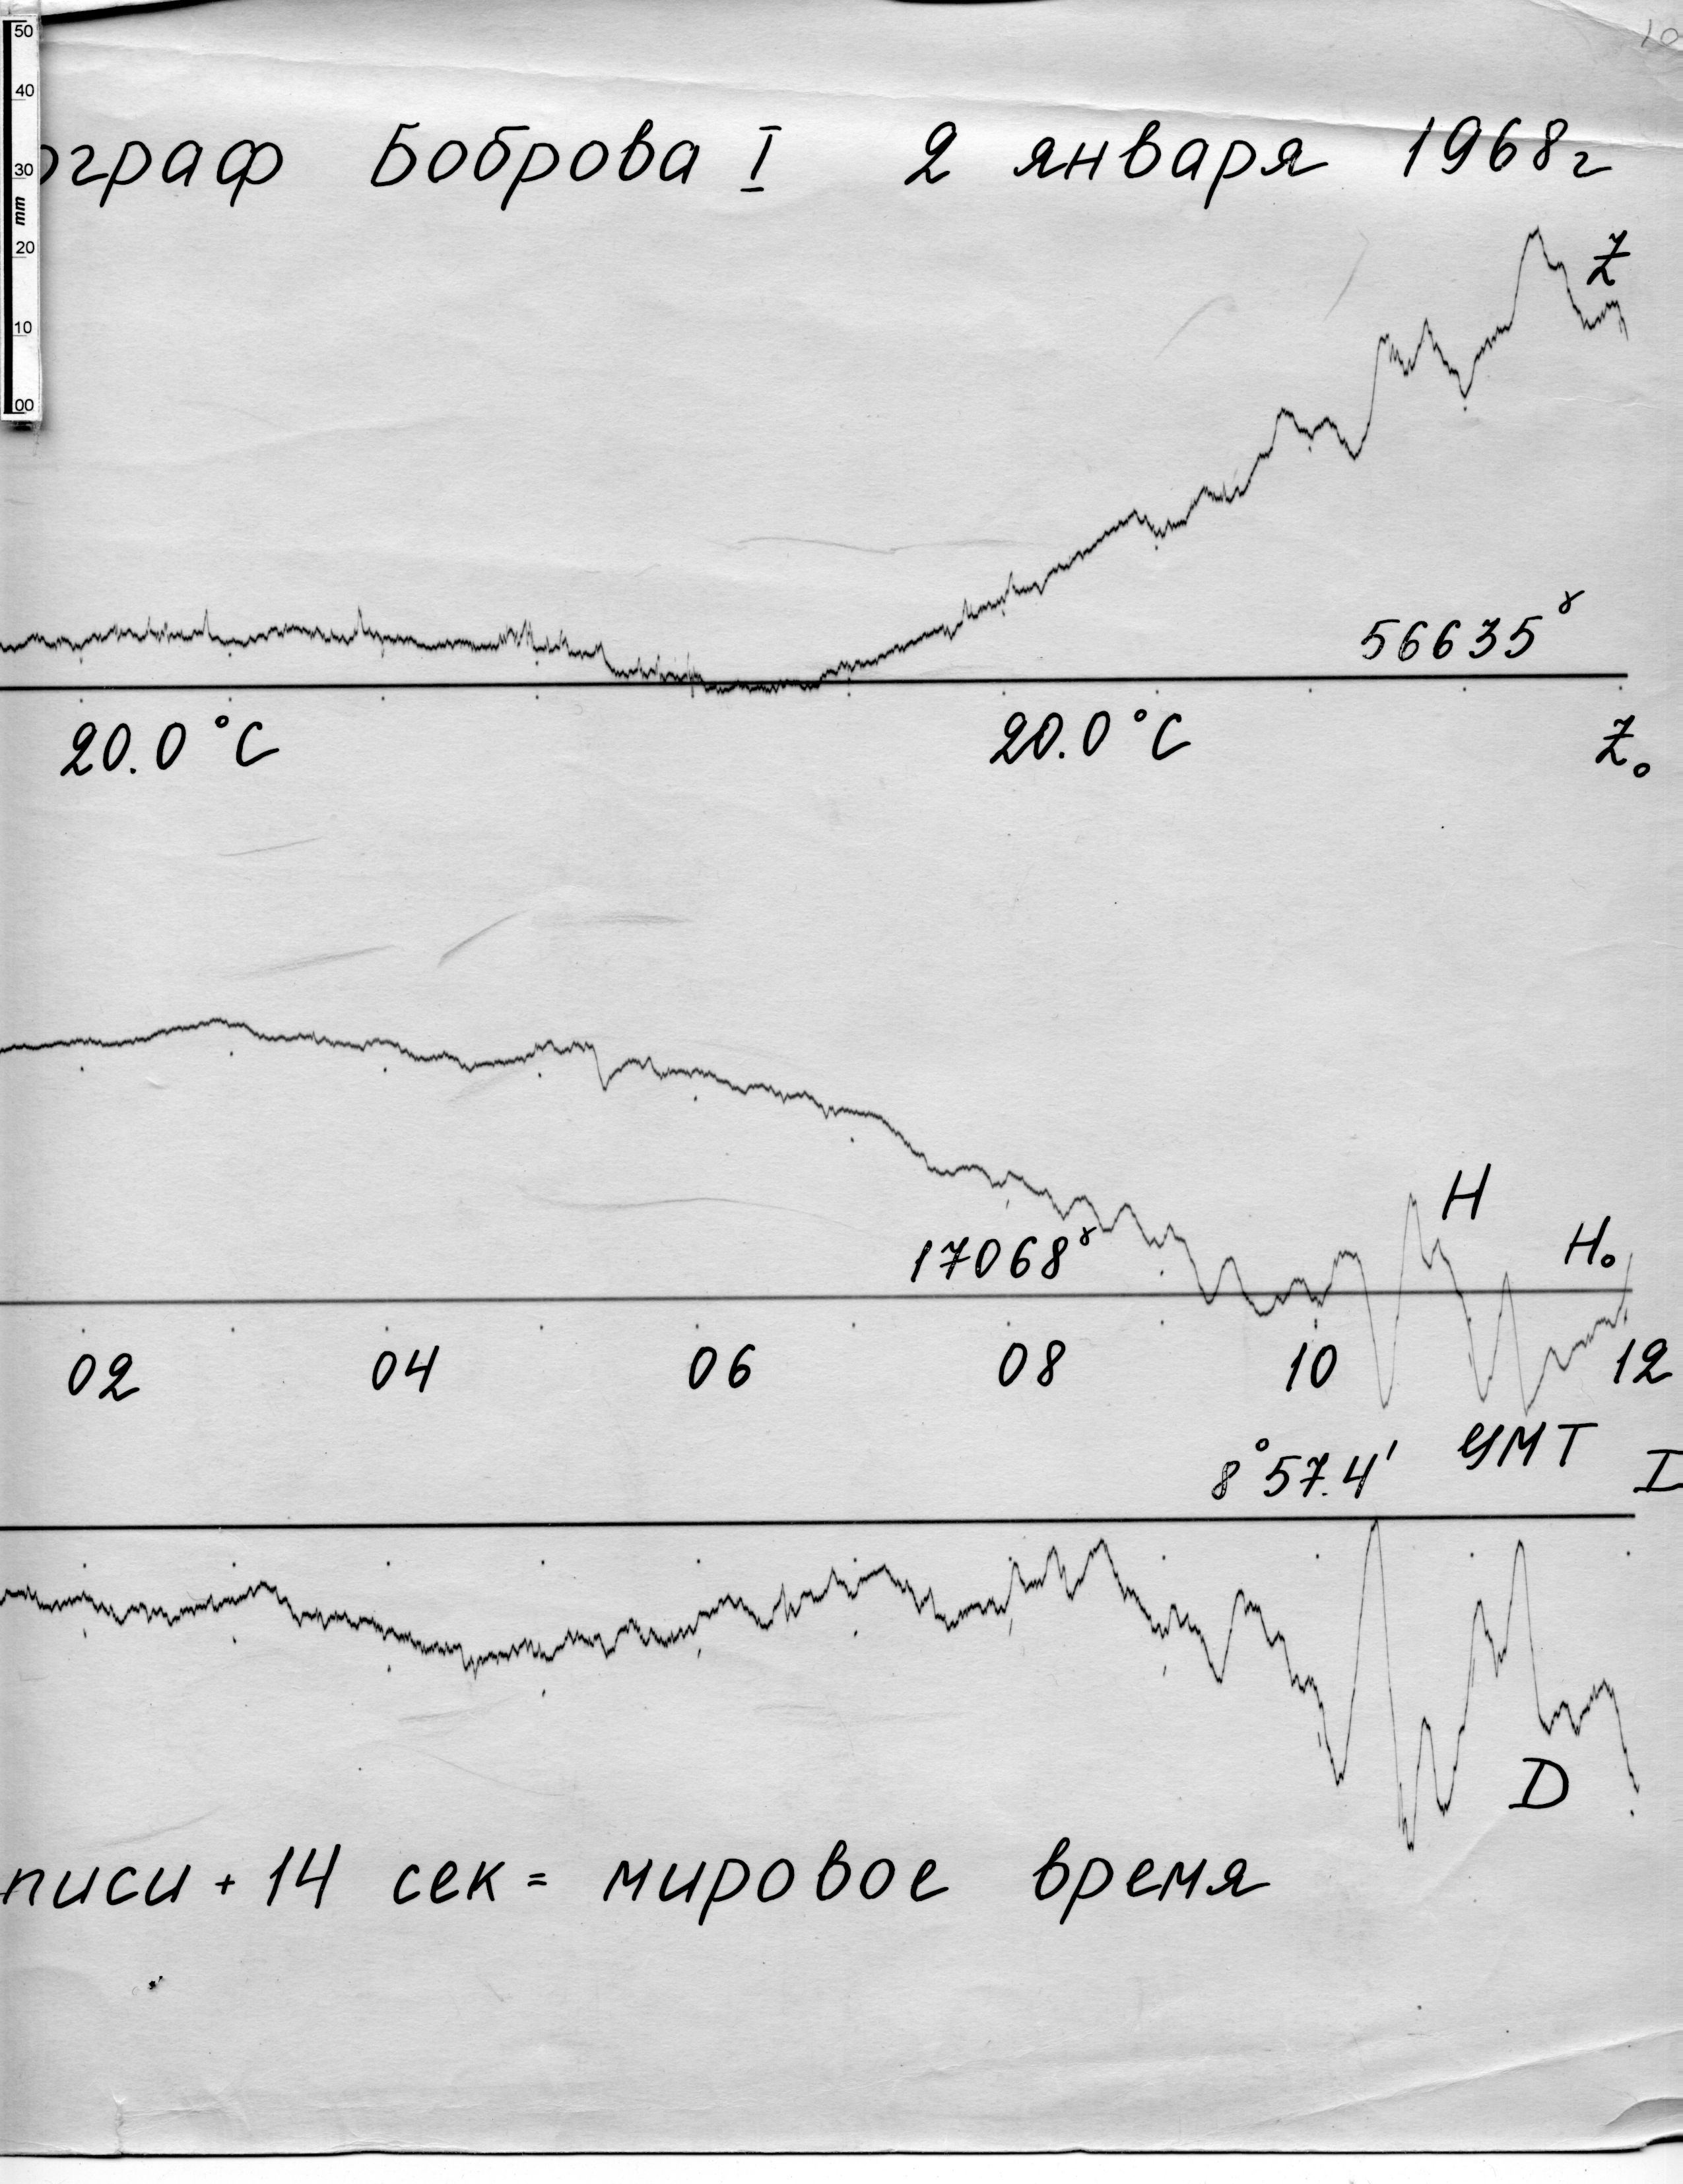 50
40
30
mm
20
10
00
10
ограф Боброва I 2 января 1968г
Z
56635γ
20.0°C 20.0°C Z₀
H
17068γ H₀
02 04 06 08 10 12
8°57.4' УМТ
D
писи + 14 сек = мировое время